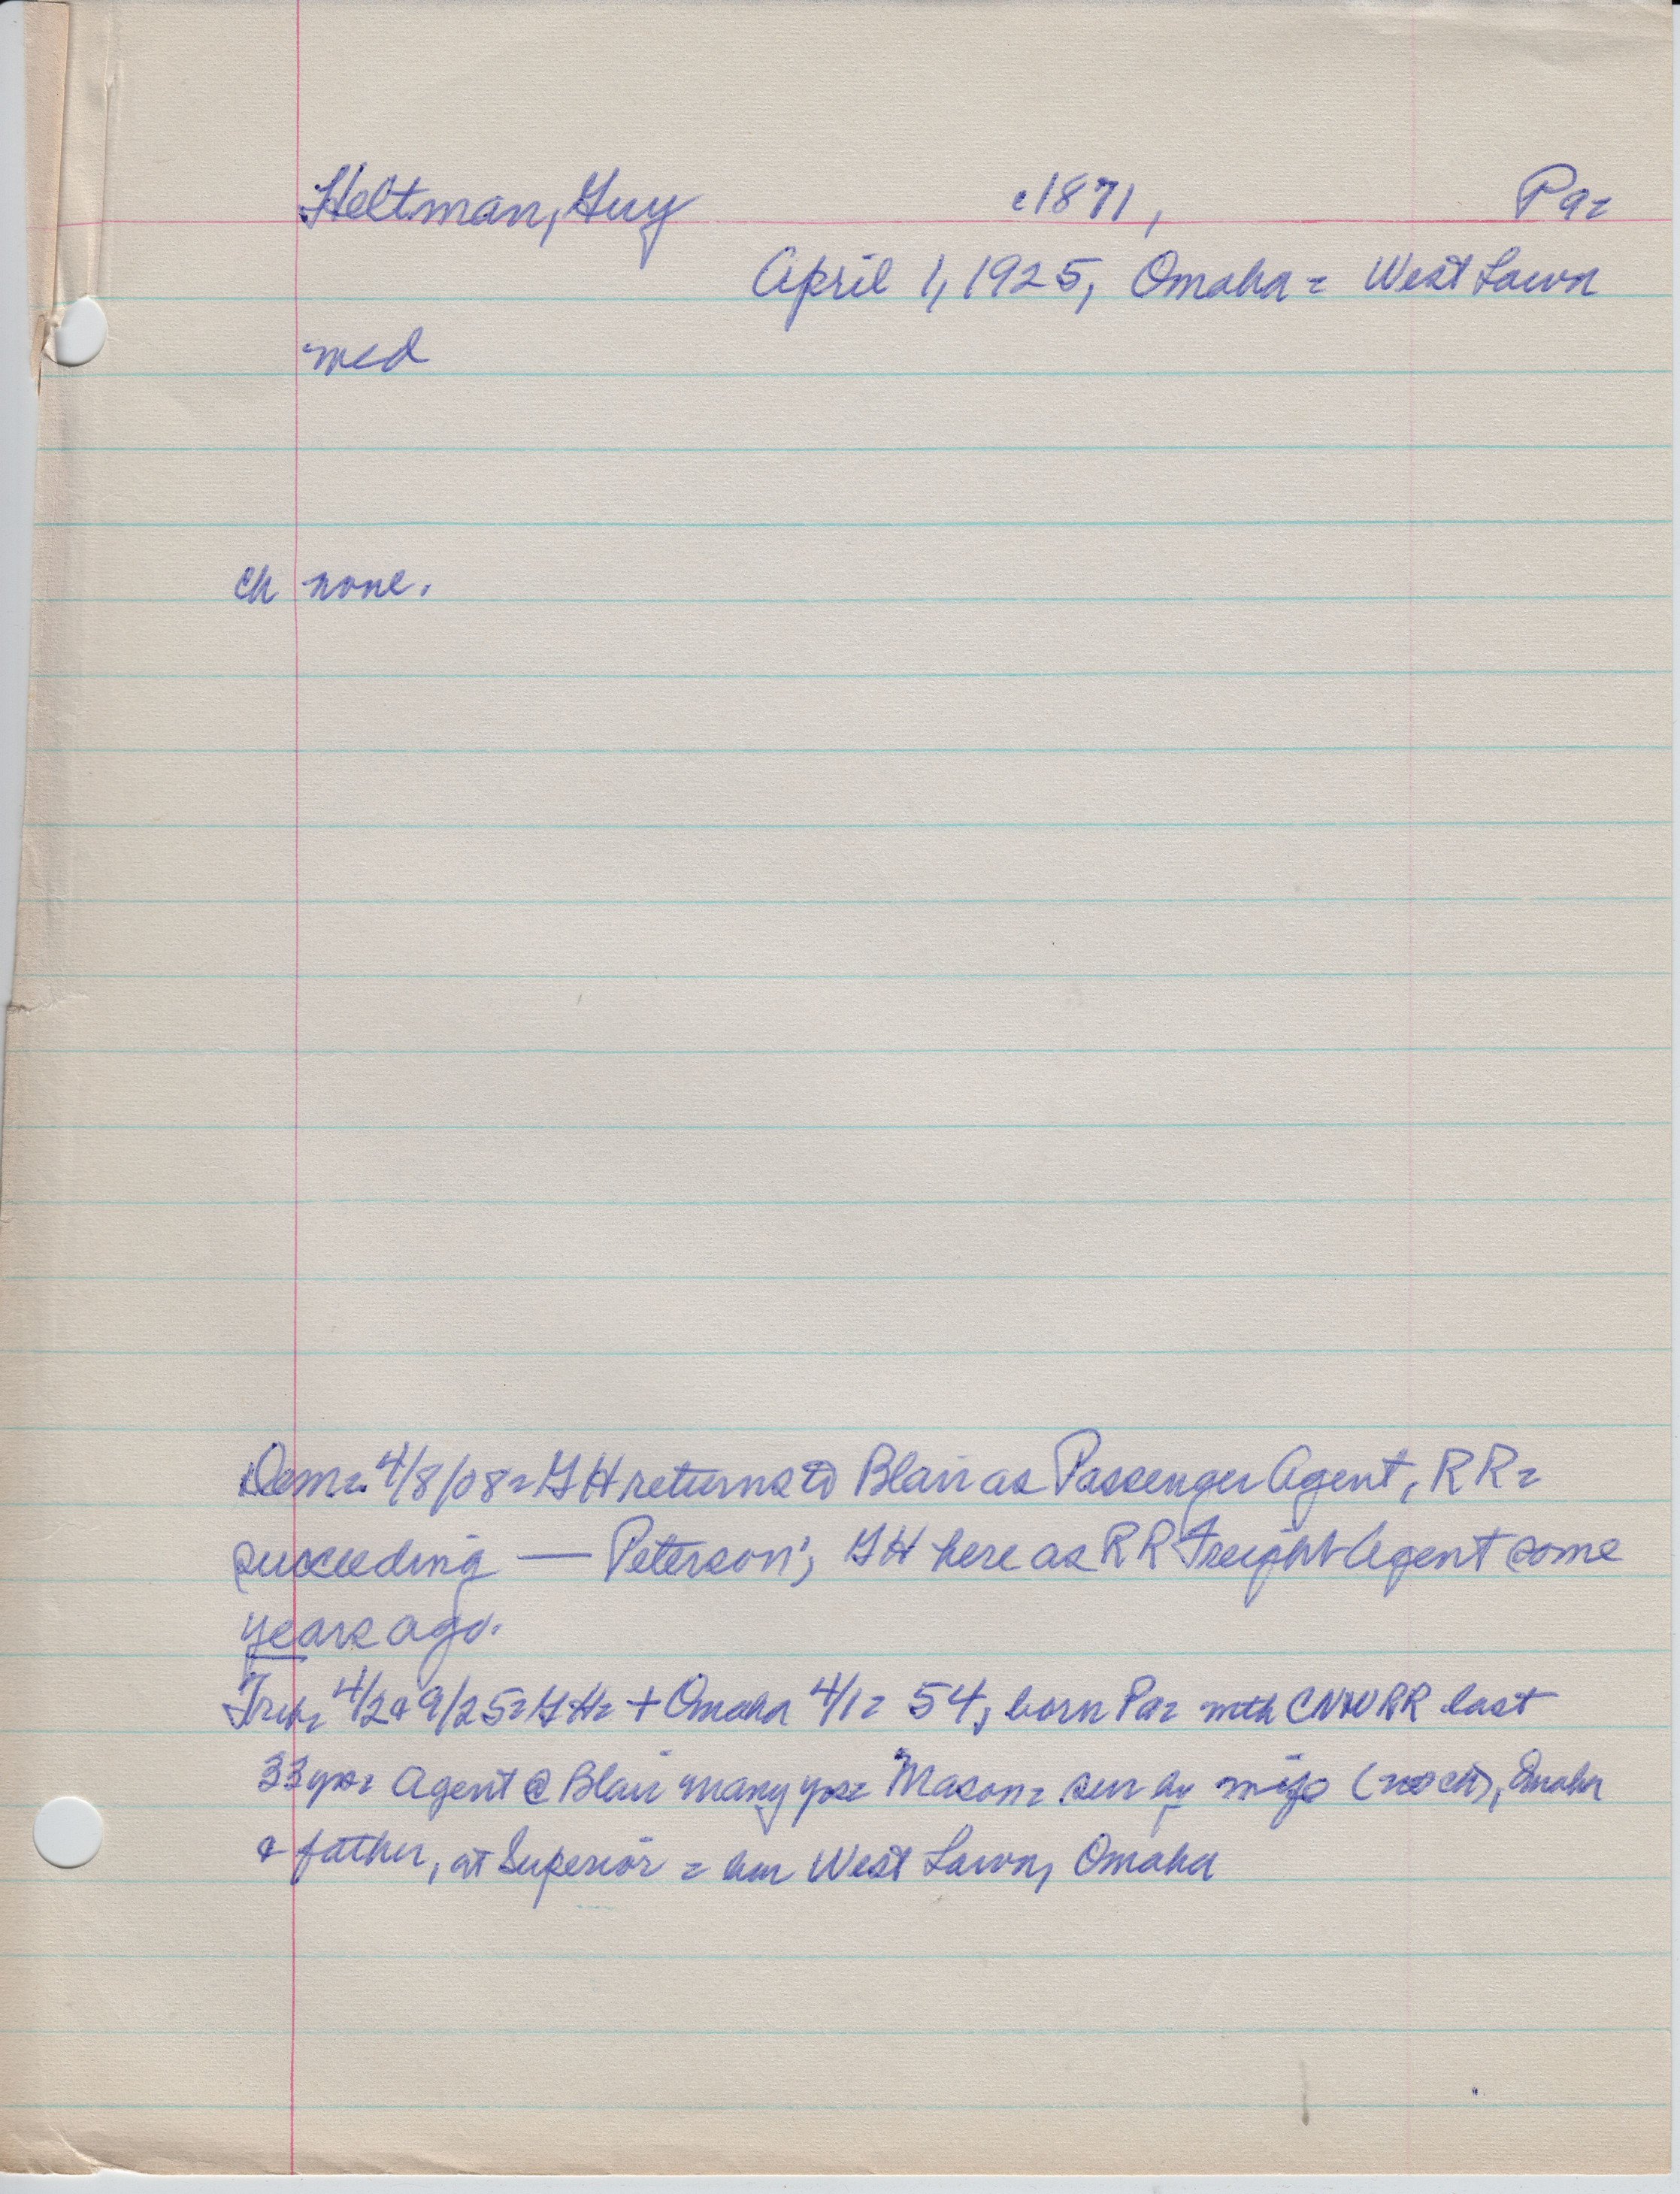 Heltman, Guy c1871, Pa=
April 1, 1925, Omaha = West Lawn
med
ch none.
Dem= 4/8/08= GH returns to Blair as Passenger Agent, RR=
succeeding — Peterson; GH here as RR Freight Agent some
years ago.
Trib= 4/2&9/25= GH= + Omaha 4/1= 54, born Pa= with CNW RR last
33 yrs= Agent @ Blair many yrs= Mason= sur by wife (no ch), Omaha
& father, at Superior = bur West Lawn, Omaha